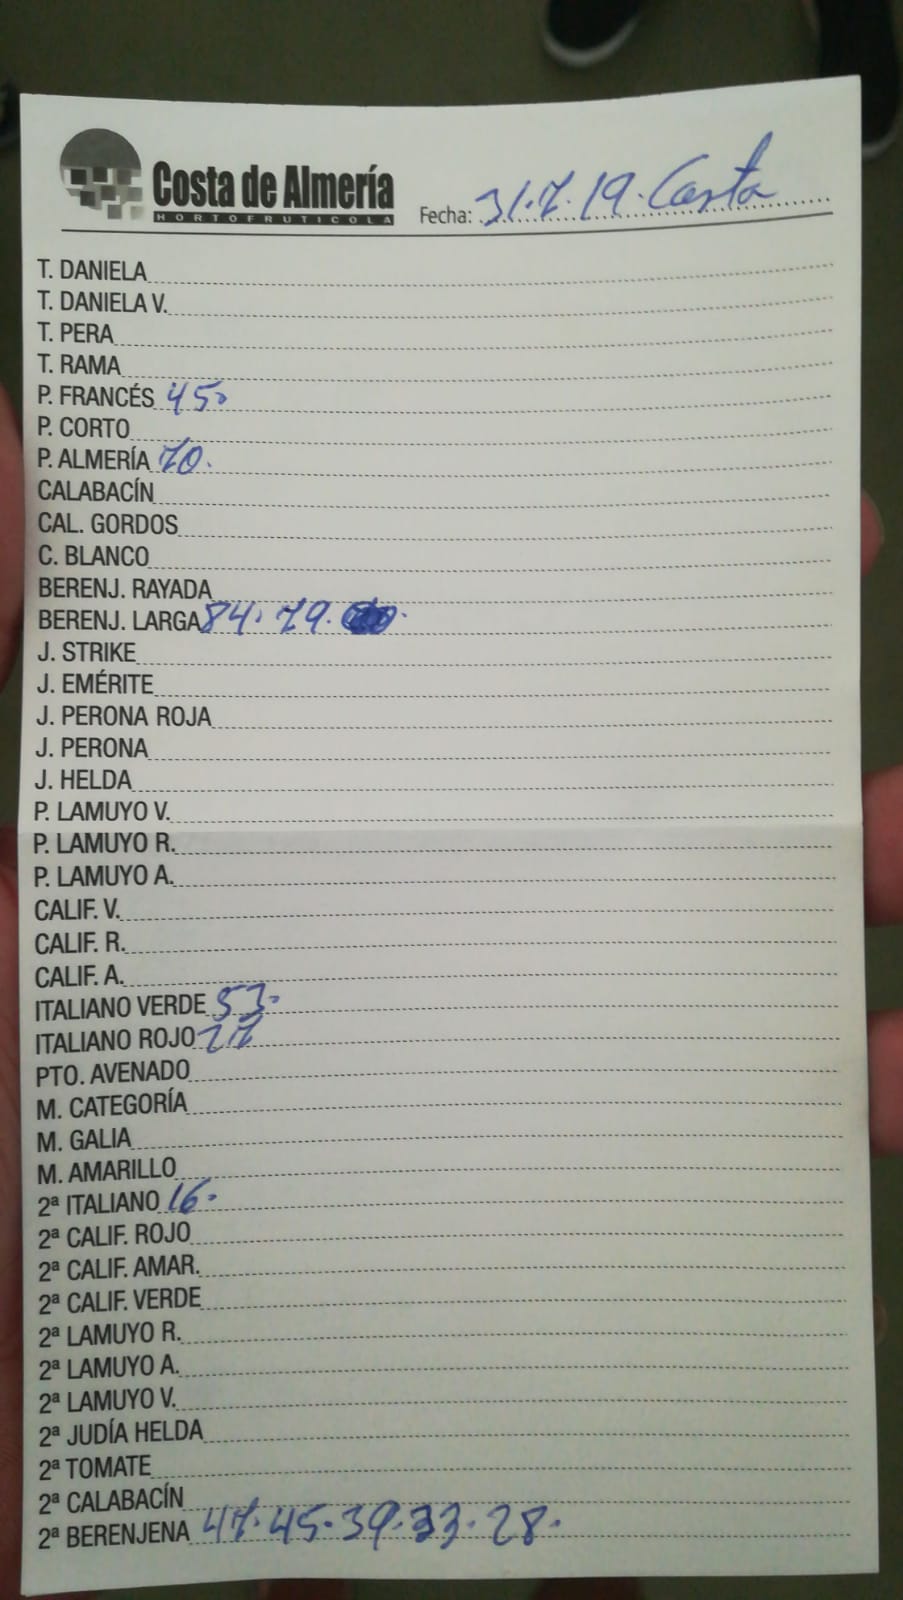 Costa de Almería
HORTOFRUTICOLA
Fecha: 31.7.19. Costa
T. DANIELA
T. DANIELA V.
T. PERA
T. RAMA
P. FRANCÉS 45.
P. CORTO
P. ALMERÍA 70.
CALABACÍN
CAL. GORDOS
C. BLANCO
BERENJ. RAYADA
BERENJ. LARGA 84. 79.
J. STRIKE
J. EMÉRITE
J. PERONA ROJA
J. PERONA
J. HELDA
P. LAMUYO V.
P. LAMUYO R.
P. LAMUYO A.
CALIF. V.
CALIF. R.
CALIF. A.
ITALIANO VERDE 53.
ITALIANO ROJO 27
PTO. AVENADO
M. CATEGORÍA
M. GALIA
M. AMARILLO
2ª ITALIANO 16.
2ª CALIF. ROJO
2ª CALIF. AMAR.
2ª CALIF. VERDE
2ª LAMUYO R.
2ª LAMUYO A.
2ª LAMUYO V.
2ª JUDÍA HELDA
2ª TOMATE
2ª CALABACÍN
2ª BERENJENA 47. 45. 39. 33. 28.